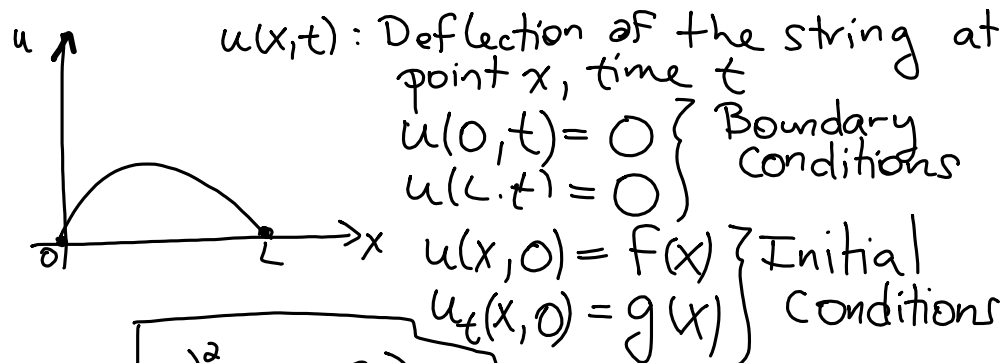 u
u(x,t) : Deflection of the string at
point x, time t
u(0,t) = 0
u(L,t) = 0
Boundary
Conditions
0
L
x
u(x,0) = f(x)
u_t(x,0) = g(x)
Initial
Conditions